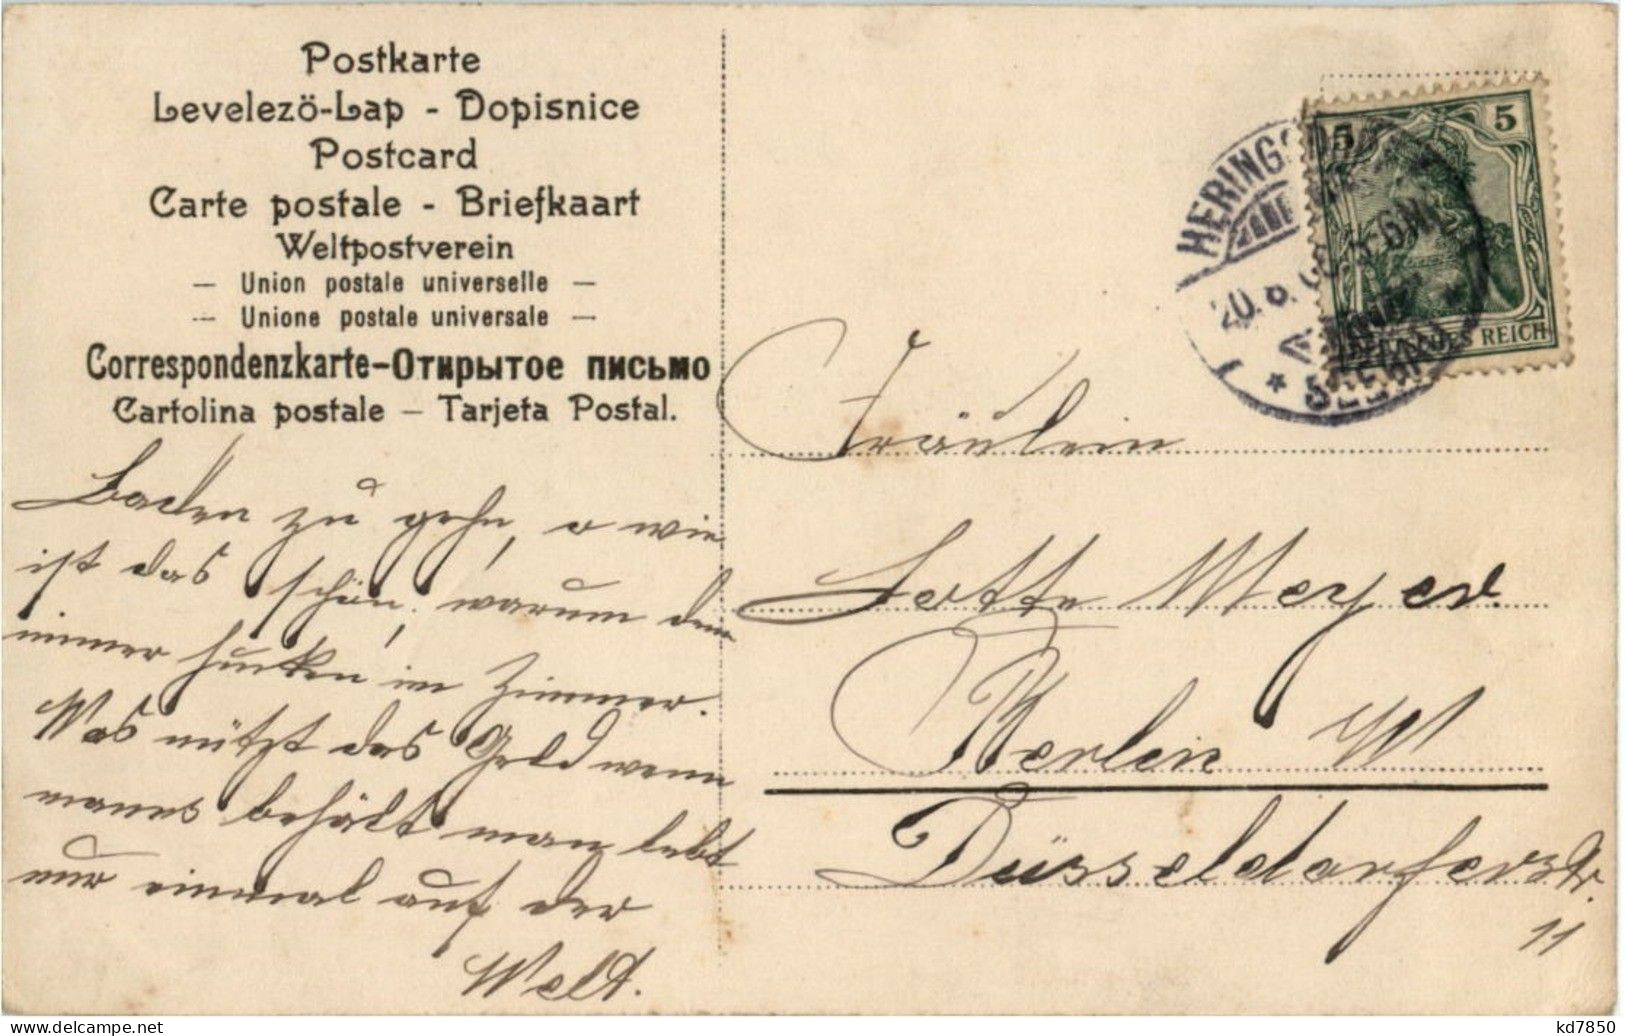 Postkarte
Levelezö-Lap - Dopisnice
Postcard
Carte postale - Briefkaart
Weltpostverein
— Union postale universelle —
— Unione postale universale —
Correspondenzkarte-Открытое письмо
Cartolina postale — Tarjeta Postal.
Baden zu gehn, o wie
ist das schön, warum den
immer hucken im Zimmer.
Was nützt das Geld wenn
manns behält man lebt
nur einmal auf der
Welt.
5 5
REICH
HERINGS
20.8.
5-6N
SEEBAD
Fräulein
Lotte Meyer
Berlin W
Düsseldorferstr.
11
kd7850